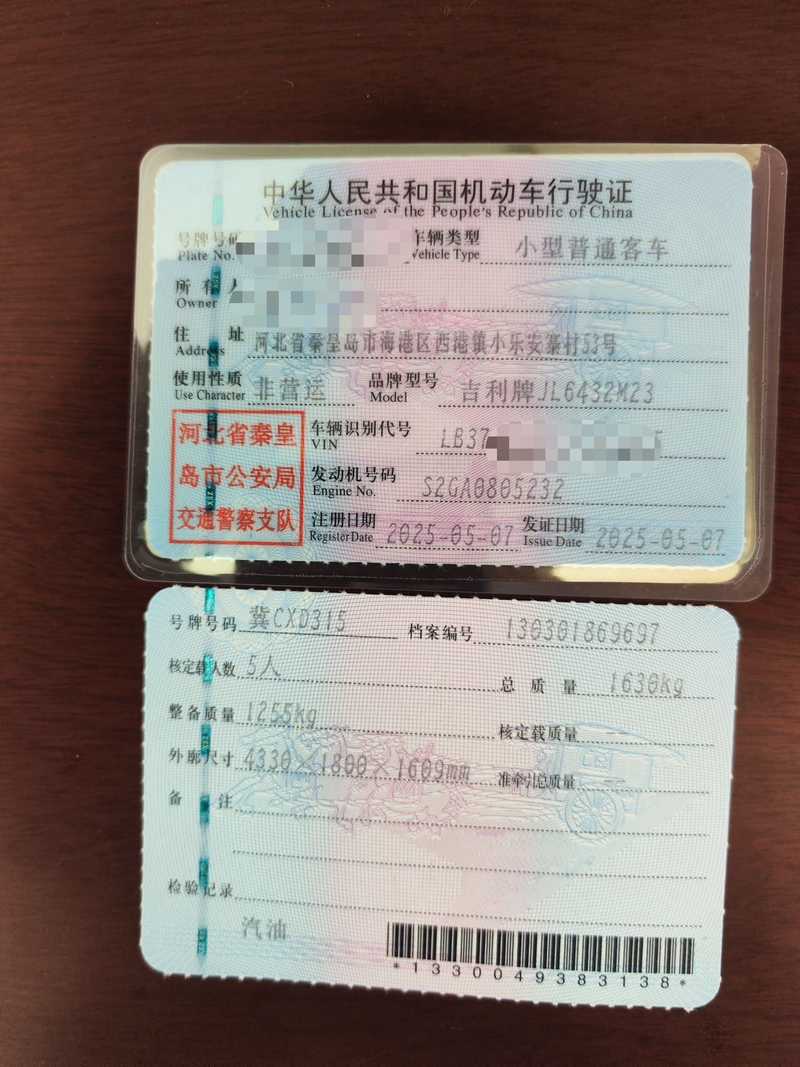 中华人民共和国机动车行驶证
Vehicle License of the People's Republic of China
号牌号码 Plate No.
车辆类型 Vehicle Type 小型普通客车
所有人 Owner
住址 Address 河北省秦皇岛市海港区西港镇小乐安寨村53号
使用性质 Use Character 非营运 品牌型号 Model 吉利牌JL6432M23
河北省秦皇
岛市公安局
交通警察支队
车辆识别代号 VIN LB37
发动机号码 Engine No. S2GA0805232
注册日期 Register Date 2025-05-07 发证日期 Issue Date 2025-05-07
号牌号码 冀CXD315 档案编号 130301869697
核定载人数 5人 总质量 1630kg
整备质量 1255kg 核定载质量
外廓尺寸 4330×1800×1609mm 准牵引总质量
备注
检验记录
汽油
*1330049383138*